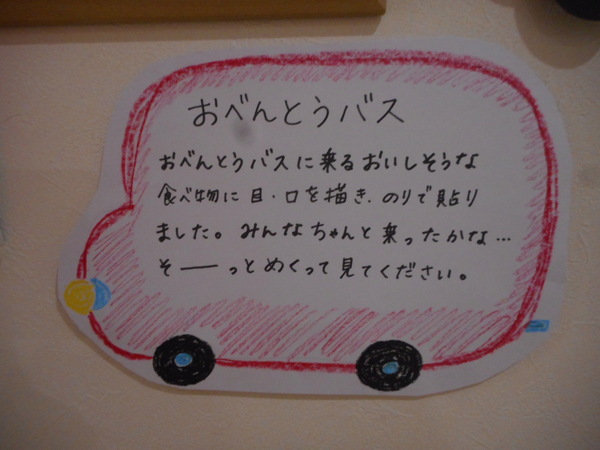 おべんとうバス
おべんとうバスに乗るおいしそうな
食べ物に目・口を描き、のりで貼り
ました。みんなちゃんと乗ったかな…
そーっとめくって見てください。